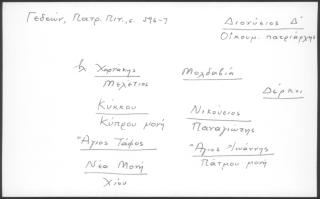 Γεδεών, Πατρ. Πιν., σ. 596-7
Διονύσιος Δ'
Οἰκουμ. πατριάρχης
βλ. Χορτάκης
Μελέτιος
Μολδαβία
Δέρκοι
Κύκκου
Κύπρου μονή
Νικούσιος
Παναγιώτης
Ἅγιος Τάφος
Ἅγιος Ἰωάννης
Πάτμου μονή
Νέα Μονή
Χίου